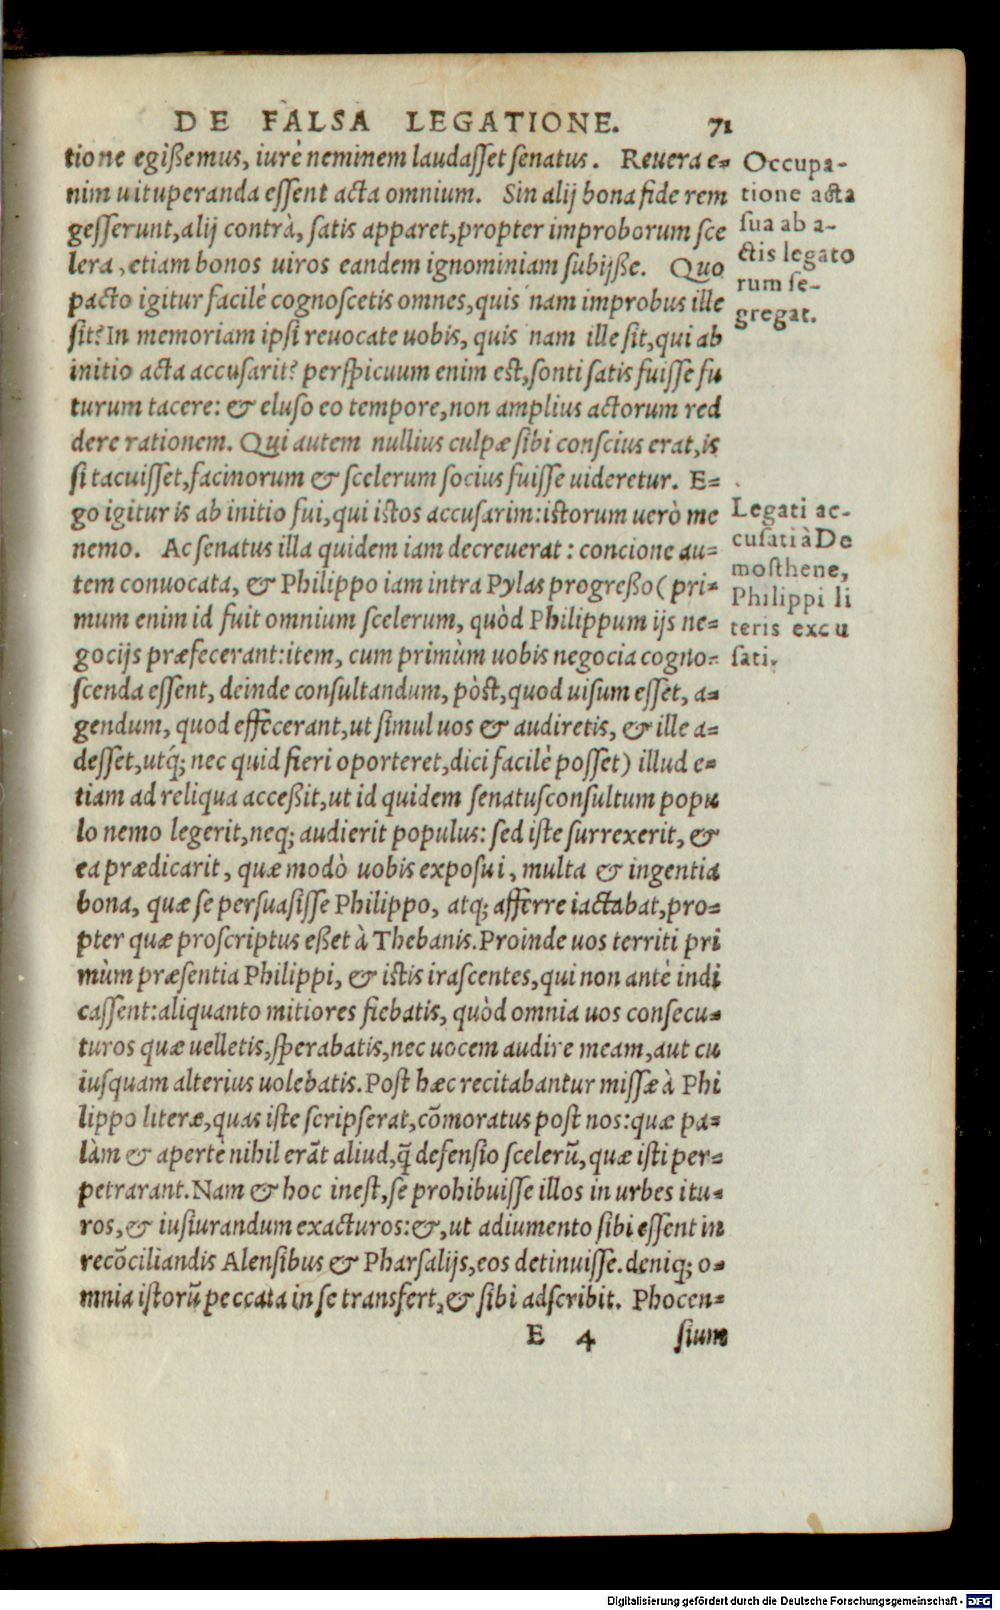 DE FALSA LEGATIONE. 71
tione egißemus, iurè neminem laudasset senatus. Reuera e-
nim uituperanda essent acta omnium. Sin alij bona fide rem
gesserunt, alij contrà, satis apparet, propter improborum sce
lera, etiam bonos uiros eandem ignominiam subijße. Quo
pacto igitur facilè cognoscetis omnes, quis nam improbus ille
sit? In memoriam ipsi reuocate uobis, quis nam ille sit, qui ab
initio acta accusarit? perspicuum enim est, sonti satis fuisse fu
turum tacere: & eluso eo tempore, non amplius actorum red
dere rationem. Qui autem nullius culpæ sibi conscius erat, is
si tacuisset, facinorum & scelerum socius fuisse uideretur. E-
go igitur is ab initio fui, qui istos accusarim: istorum uerò me
nemo. Ac senatus illa quidem iam decreuerat: concione au-
tem conuocata, & Philippo iam intra Pylas progreßo (pri-
mum enim id fuit omnium scelerum, quòd Philippum ijs ne-
gocijs præfecerant: item, cum primùm uobis negocia cogno-
scenda essent, deinde consultandum, pòst, quod uisum esset, a-
gendum, quod effecerant, ut simul uos & audiretis, & ille a-
desset, utq́; nec quid fieri oporteret, dici facilè posset) illud e-
tiam ad reliqua acceßit, ut id quidem senatusconsultum popu
lo nemo legerit, neq; audierit populus: sed iste surrexerit, &
ea prædicarit, quæ modò uobis exposui, multa & ingentia
bona, quæ se persuasisse Philippo, atq; afferre iactabat, pro-
pter quæ proscriptus eßet à Thebanis. Proinde uos territi pri
mùm præsentia Philippi, & istis irascentes, qui non antè indi
cassent: aliquanto mitiores fiebatis, quòd omnia uos consecu-
turos quæ uelletis, sperabatis, nec uocem audire meam, aut cu
iusquam alterius uolebatis. Post hæc recitabantur missæ à Phi
lippo literæ, quas iste scripserat, cōmoratus post nos: quæ pa-
làm & apertè nihil erāt aliud, q̃ defensio scelerū, quæ isti per-
petrarant. Nam & hoc inest, se prohibuisse illos in urbes itu-
ros, & iusiurandum exacturos: &, ut adiumento sibi essent in
recōciliandis Alensibus & Pharsalijs, eos detinuisse. deniq; o-
mnia istorū peccata in se transfert, & sibi adscribit. Phocen-
E 4 sium
Occupa-
tione acta
sua ab a-
ctis legato
rum se-
gregat.
Legati ac-
cusati à De
mosthene,
Philippi li
teris excu
sati.
Digitalisierung gefördert durch die Deutsche Forschungsgemeinschaft - DFG